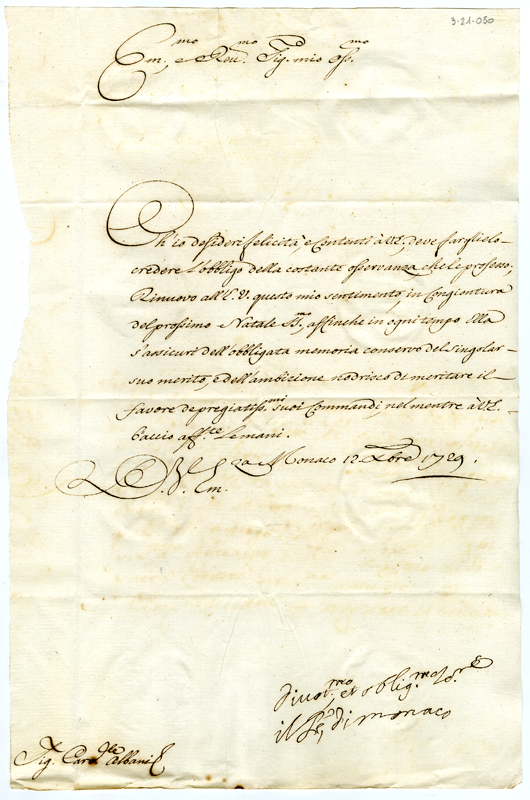 3-21-050
Em.mo e Reu.mo Sig. mio oss.mo
Ch'io desideri felicità, e Contenti à V.E., deve farglielo-
credere l'obbligo della costante osservanza, che le professo,
Rinuovo all'E.V. questo mio sentimento, in Congiontura
del prossimo S. Natale, affinche in ogni tempo Ella
s'assicuri dell'obbligata memoria conservo del singolar
suo merito, e dell'ambicione nodrisco di meritare il-
favore de pregiatiss.mi suoi Commandi, nel mentre à V.E.
baccio aff.te le mani.
D. V. Em. Monaco 12 Xbre 1729.
diuot.mo et obblig.mo
il di monaco
Sig. Card.le Albani